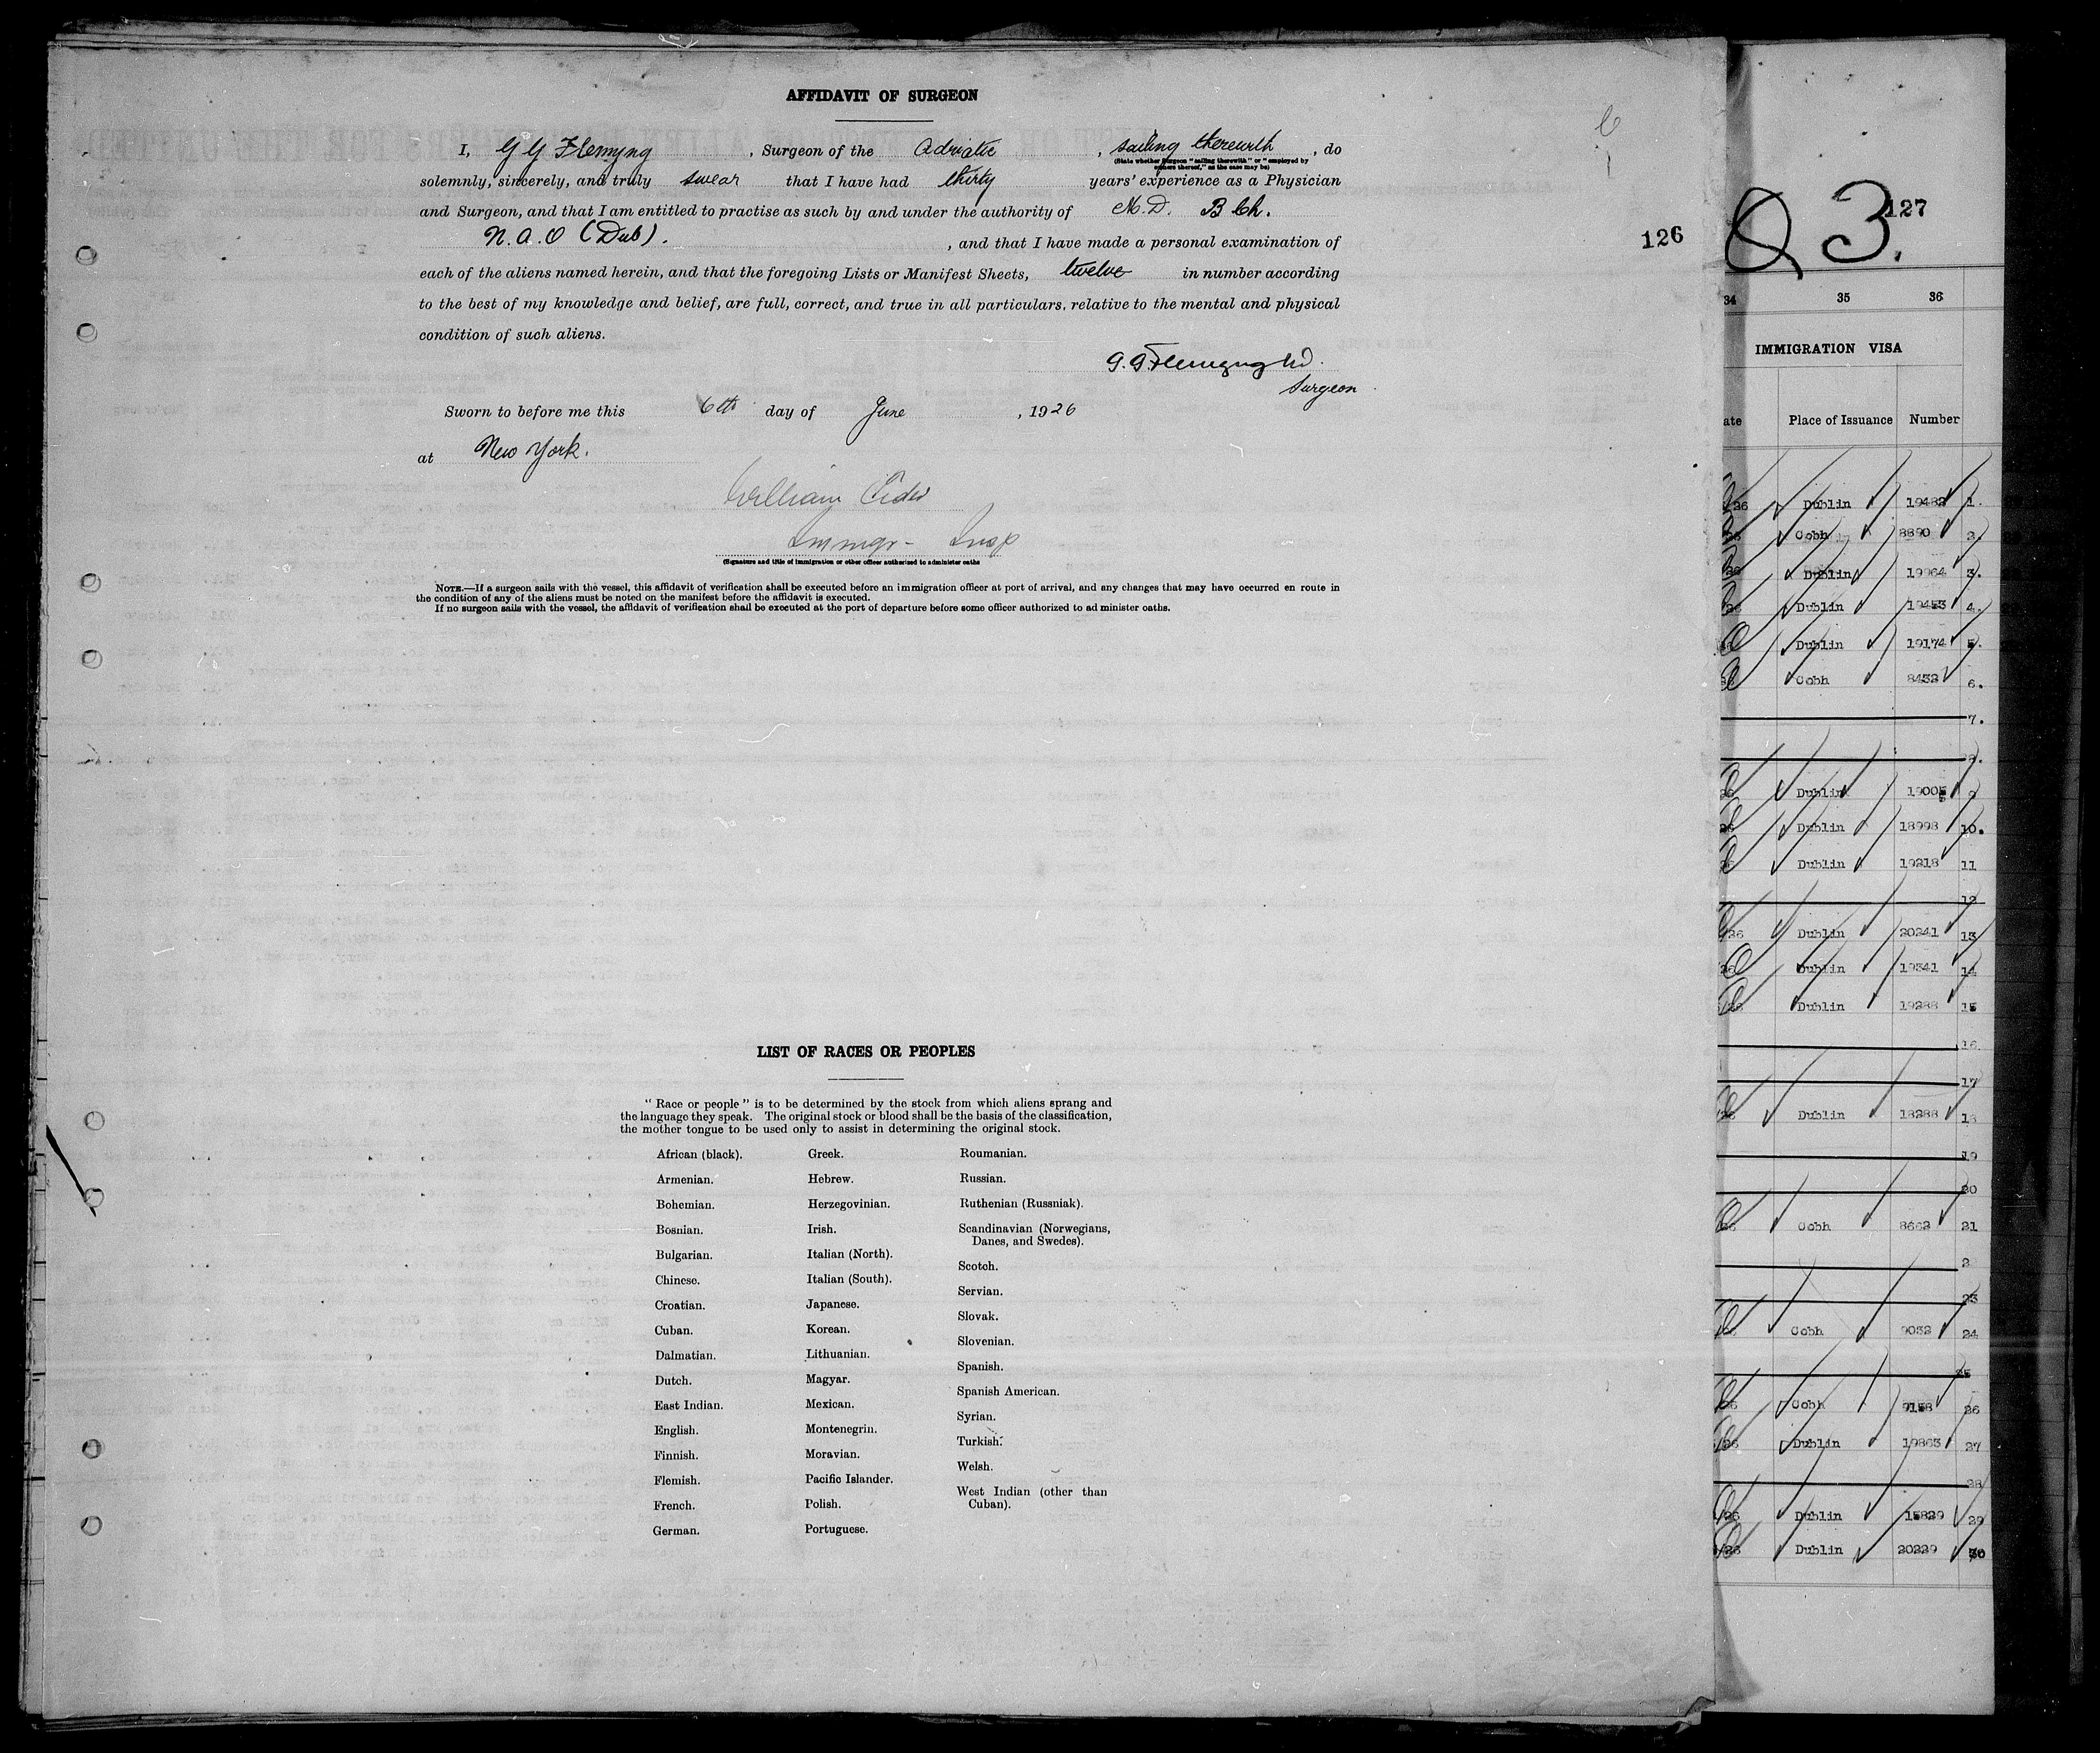 AFFIDAVIT OF SURGEON
I, G G Flemyng, Surgeon of the Adriatic, sailing therewith, do
(State whether Surgeon "sailing therewith" or "employed by
owners thereof," as the case may be)
solemnly, sincerely, and truly swear that I have had thirty years' experience as a Physician
and Surgeon, and that I am entitled to practise as such by and under the authority of M.D. B Ch.
(Dub)., and that I have made a personal examination of
each of the aliens named herein, and that the foregoing Lists or Manifest Sheets, twelve in number according
to the best of my knowledge and belief, are full, correct, and true in all particulars, relative to the mental and physical
condition of such aliens.
G. G. Flemyng MD.
Surgeon
Sworn to before me this 6th day of June, 1926
at New York.
William
Immgr - Insp
(Signature and title of immigration or other officer authorized to administer oaths
NOTE.—If a surgeon sails with the vessel, this affidavit of verification shall be executed before an immigration officer at port of arrival, and any changes that may have occurred en route in
the condition of any of the aliens must be noted on the manifest before the affidavit is executed.
If no surgeon sails with the vessel, the affidavit of verification shall be executed at the port of departure before some officer authorized to ad minister oaths.
126
LIST OF RACES OR PEOPLES
"Race or people" is to be determined by the stock from which aliens sprang and
the language they speak. The original stock or blood shall be the basis of the classification,
the mother tongue to be used only to assist in determining the original stock.
African (black).
Armenian.
Bohemian.
Bosnian.
Bulgarian.
Chinese.
Croatian.
Cuban.
Dalmatian.
Dutch.
East Indian.
English.
Finnish.
Flemish.
French.
German.
Greek.
Hebrew.
Herzegovinian.
Irish.
Italian (North).
Italian (South).
Japanese.
Korean.
Lithuanian.
Magyar.
Mexican.
Montenegrin.
Moravian.
Pacific Islander.
Polish.
Portuguese.
Roumanian.
Russian.
Ruthenian (Russniak).
Scandinavian (Norwegians,
Danes, and Swedes).
Scotch.
Servian.
Slovak.
Slovenian.
Spanish.
Spanish American.
Syrian.
Turkish.
Welsh.
West Indian (other than
Cuban).
3.
127
34 35 36
IMMIGRATION VISA
ate Place of Issuance Number
26 Dublin 19482 1.
Cobh 8890 2.
Dublin 19964 3.
26 Dublin 19453 4.
Dublin 19174 5.
Cobh 8432 6.
7.
8.
Dublin 19005 9
Dublin 18998 10.
Dublin 19218 11
12
26 Dublin 20241 13
Dublin 19341 14
26 Dublin 19288 15
16
17
26 Dublin 18288 18
19
20
Cobh 8662 21
2
23
Cobh 9032 24
25
26 Cobh 9158 26
26 Dublin 19863 27
28
26 Dublin 15829 29
26 Dublin 20229 30